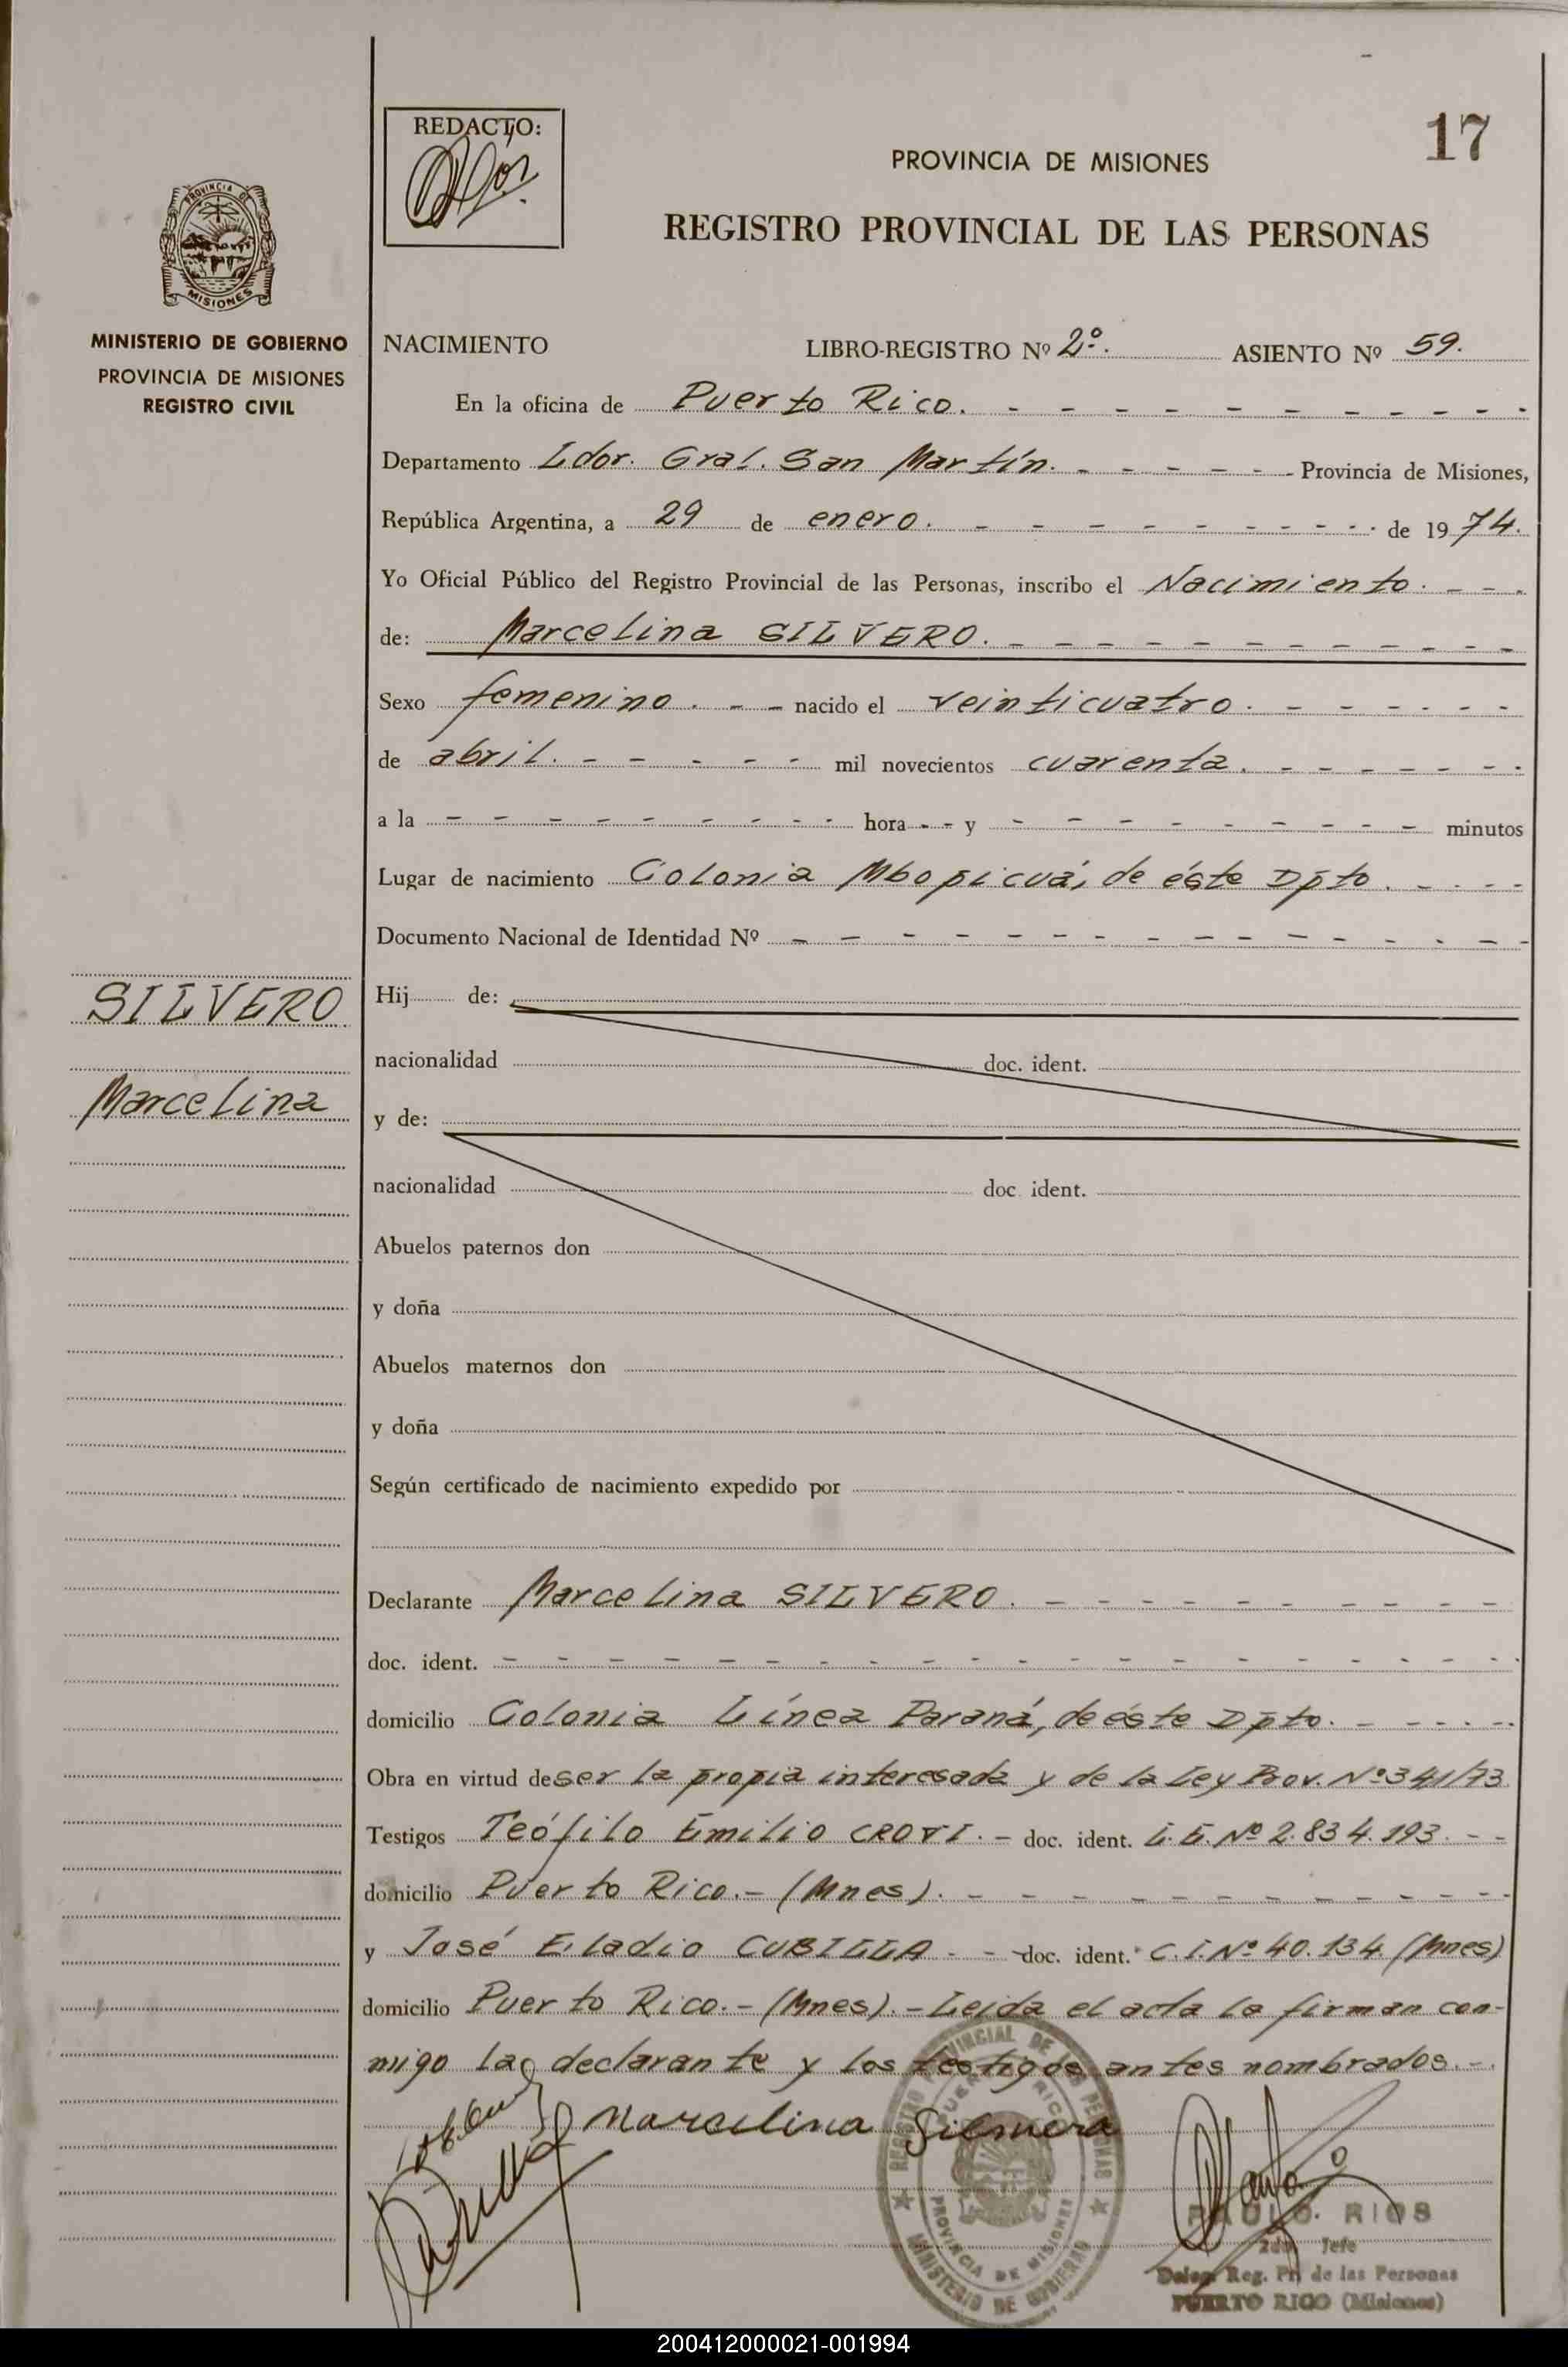 17
REDACTO:
PROVINCIA DE MISIONES
REGISTRO PROVINCIAL DE LAS PERSONAS
PROVINCIA DE
MISIONES
MINISTERIO DE GOBIERNO
PROVINCIA DE MISIONES
REGISTRO CIVIL
NACIMIENTO LIBRO-REGISTRO Nº 2º. ASIENTO Nº 59.
En la oficina de Puerto Rico. - - - - - - - - - -
Departamento Ldor. Gral. San Martín. - - - - - Provincia de Misiones,
República Argentina, a 29 de enero. - - - - - - - - - de 1974.
Yo Oficial Público del Registro Provincial de las Personas, inscribo el Nacimiento. - - -
de: Marcelina SILVERO. - - - - - - - - - -
Sexo femenino. - - nacido el veinticuatro. - - - - - -
de abril. - - - - - - mil novecientos cuarenta. - - - - - - -
a la - - - - - - - - - hora - - y - - - - - - - - - minutos
Lugar de nacimiento Colonia Mbopicuá, de éste Dpto. - - - -
Documento Nacional de Identidad Nº - - - - - - - - - - - - - - -
SILVERO
Marcelina
Hij de:
nacionalidad doc. ident.
y de:
nacionalidad doc. ident.
Abuelos paternos don
y doña
Abuelos maternos don
y doña
Según certificado de nacimiento expedido por
Declarante Marcelina SILVERO. - - - - - - - - - -
doc. ident. - - - - - - - - - - - - - - - - - -
domicilio Colonia Línea Paraná, de éste Dpto. - - - - - -
Obra en virtud de ser la propia interesada y de la Ley Prov. Nº 341/73
Testigos Teófilo Emilio CROTTI. - doc. ident. L.E. Nº 2.834.193. - -
domicilio Puerto Rico.- (Mnes). - - - - - - - - - - -
y José Eladio CUBILLA - - doc. ident. C.I. Nº 40.134. (Mnes)
domicilio Puerto Rico.- (Mnes).- Leída el acta la firman con-
migo la declarante y los testigos antes nombrados. -.
Marcelina Silvero
REGISTRO PROVINCIAL DE LAS PERSONAS
PUERTO RICO
PROVINCIA DE MISIONES
MINISTERIO DE GOBIERNO
PAUL O. RIOS
2do. Jefe
Deleg. Reg. Pr. de las Personas
PUERTO RICO (Misiones)
200412000021-001994